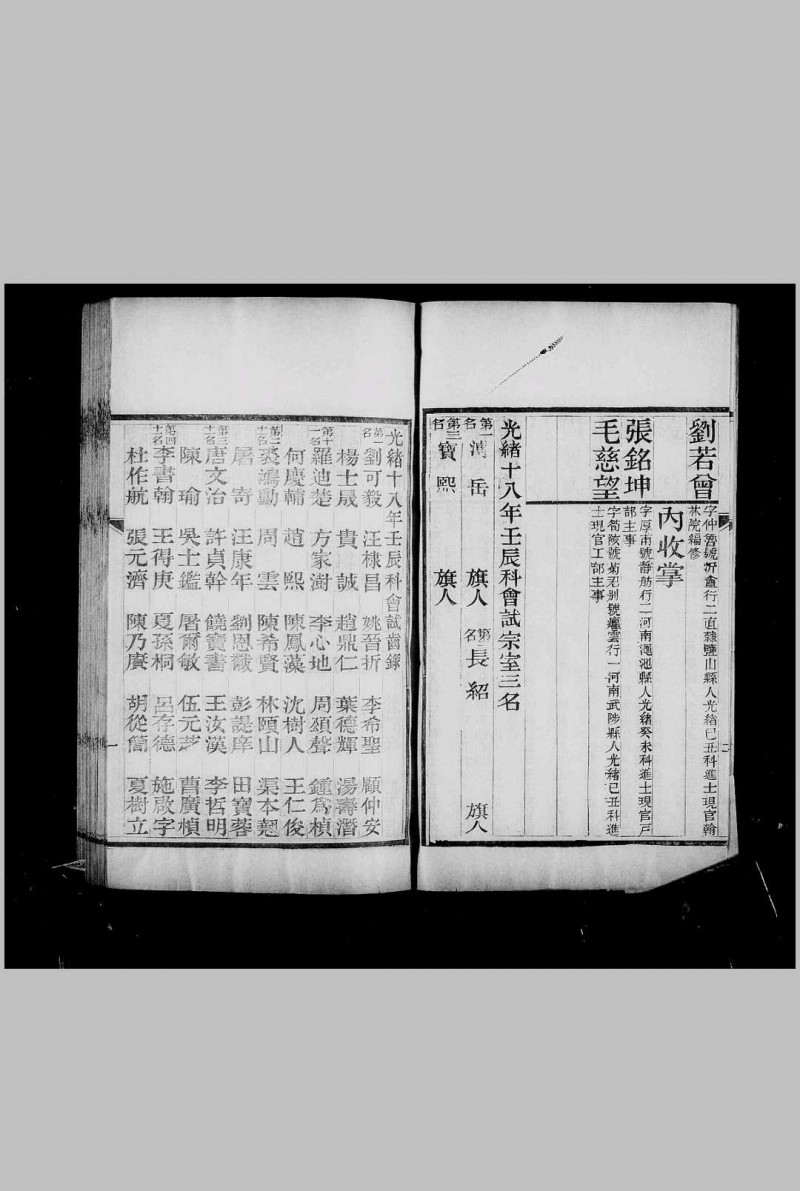 劉若曾
字仲魯號 行二直隸鹽山縣人光緒己丑科進士現官翰
林院編修
內收掌
張銘坤
字厚甫號靜舫行二河南澠池縣人光緒癸未科進士現官戶
部主事
毛慈望
字荀陔號菊 別號 雲行一河南武陟縣人光緒己丑科進
士現官工部主事
二
光緒十八年壬辰科會試宗室三名
第一名 岳 旗人 第二名 長紹 旗人
第三名 寶熙 旗人
光緒十八年壬辰科會試齒錄
第一名 劉可毅 汪棣昌 姚晉圻 李希聖 顧仲安
楊士晟 貴誠 趙鼎仁 葉德輝 湯壽潛
第十一名 羅迪楚 方家澍 李心地 周頌聲 鍾爲楨
何慶輔 趙熙 陳鳳藻 沈樹人 王仁俊
第二十一名 裘鴻勳 周雲 陳希賢 林頤山 渠本翹
屠寄 汪康年 劉恩黻 彭諟庠 田寶蓉
第三十一名 唐文治 許貞幹 饒寶書 王汝漢 李哲明
陳瑜 吳士鑑 屠爾敏 伍元芝 曹廣楨
第四十一名 李書翰 王得庚 夏孫桐 呂存德 施啟宇
杜作航 張元濟 陳乃賡 胡從簡 夏樹立
一